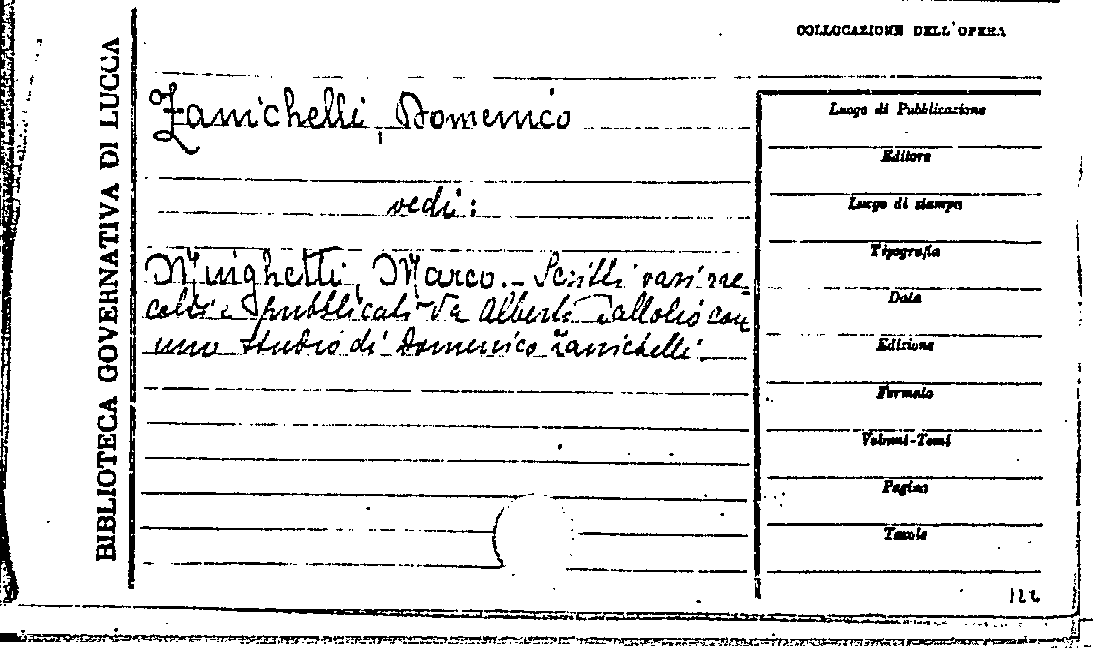 COLLOCAZIONE DELL'OPERA
BIBLIOTECA GOVERNATIVA DI LUCCA
Zanichelli, Domenico
vedi:
Minghetti, Marco. - Scritti vari rac-
colti e pubblicati da Alberto Dallolio con
uno studio di Domenico Zanichelli.
Luogo di Pubblicazione
Editore
Luogo di stampa
Tipografia
Data
Edizione
Formato
Volumi-Tomi
Pagine
Tavole